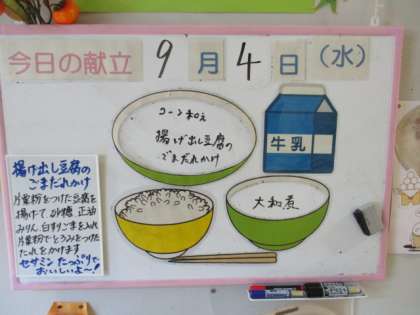 今日の献立 9月4日(水)
コーン和え
揚げ出し豆腐の
ごまだれかけ
牛乳
大和煮
揚げ出し豆腐の
ごまだれかけ
片栗粉をつけた豆腐を
揚げて、砂糖、正油
みりん、白すりごまを入れ
片栗粉でとろみをつけた
たれをかけます
セサミンたっぷりで
おいしいよ〜!